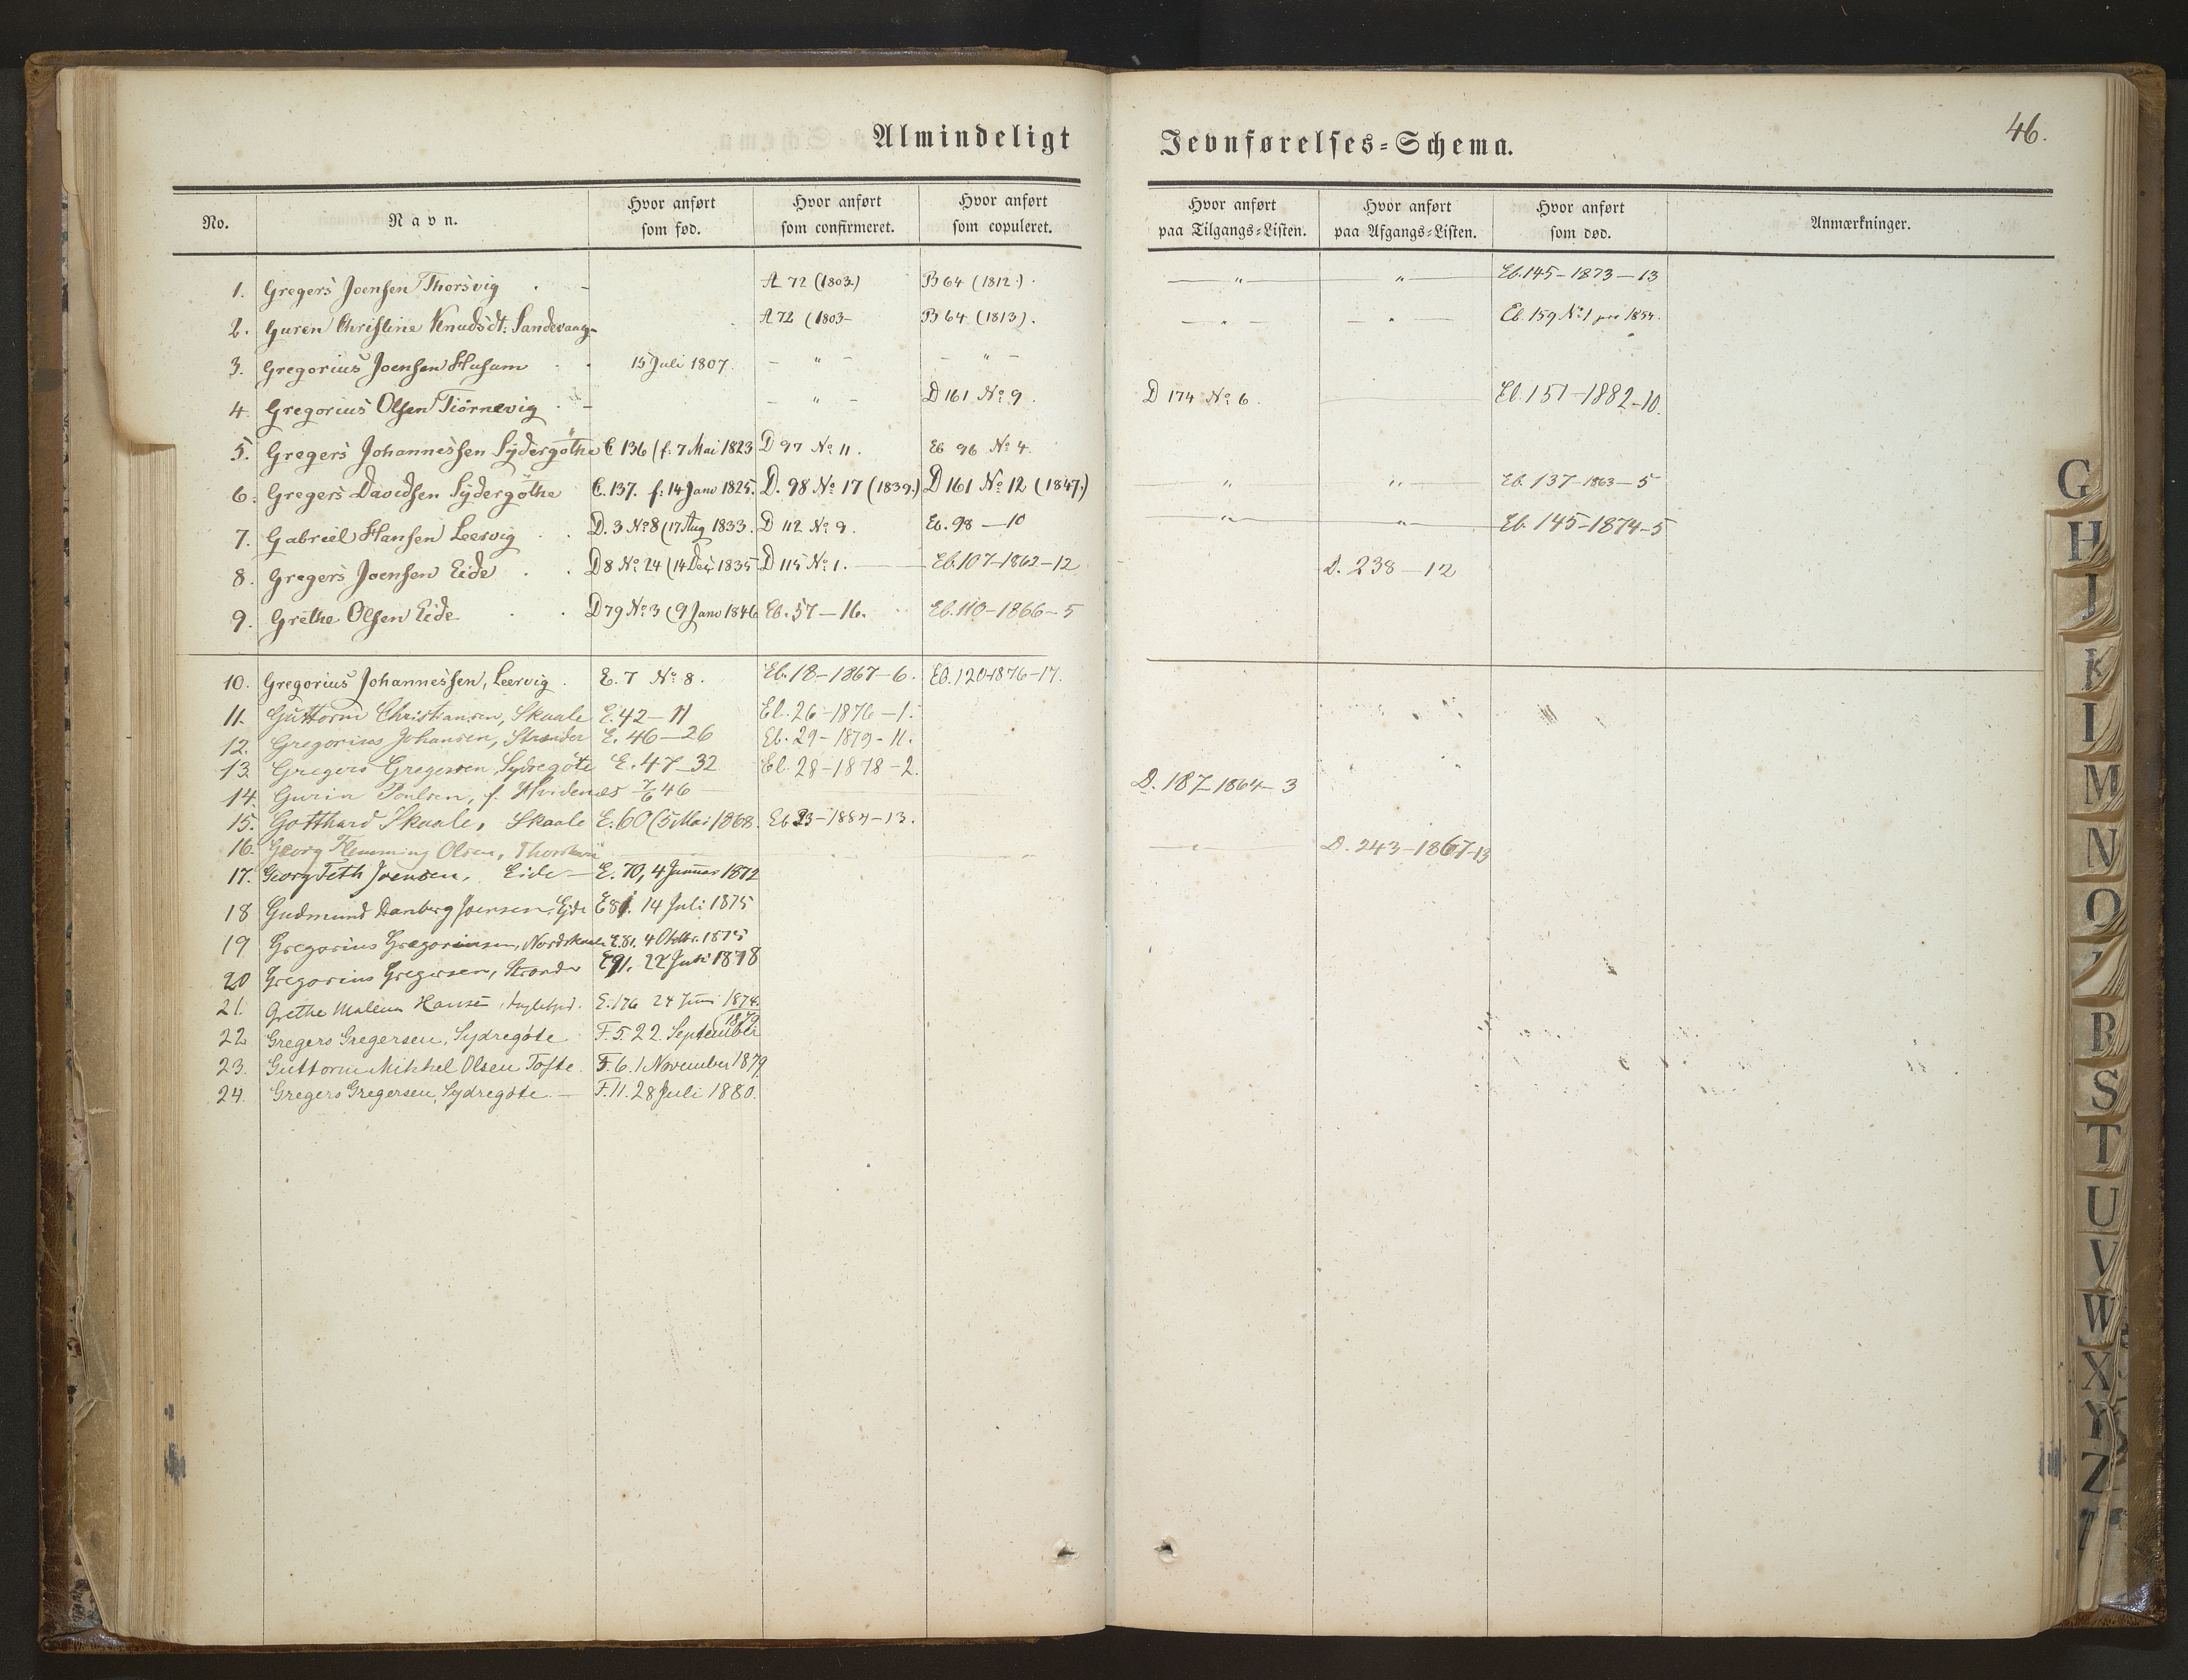 Almindeligt Jevnførelses=Schema.
46.
No. Navn. Hvor anført som fød. Hvor anført som confirmeret. Hvor anført som copuleret. Hvor anført paa Tilgangs=Listen. Hvor anført paa Afgangs=Listen. Hvor anført som død. Anmærkninger.
1. Gregers Joensen Thorsvig . - A 72 (1803) B 64 (1812). — " — " — Eb. 145 - 1873 — 13
2. Guren Christine Knudsdt: Sandevaag - A 72 (1803 - B 64 (1813). — " — — " — Eb. 159 No 1 pro 1854.
3. Gregorius Joensen Husum . . 15 Juli 1807. — " — — " —
4. Gregorius Olsen Tiørnevig . - — " — D 161 No 9. D 174 No 6. Eb. 151 - 1882 - 10.
5. Gregers Johannessen Sydergøthe C 136 (f: 7 Mai 1823 D 97 No 11. Eb 96 No 4.
6. Gregers Davidsen Sydergøthe C. 137. f: 14 Janv 1825. D. 98 No 17 (1839.) D 161 No 12 (1847.) — " — " — Eb. 137 - 1863 — 5
7. Gabriel Hansen Leervig . . D. 3 No 8 (17 Aug 1833. D 112 No 9. Eb. 98 — 10 — " — " — Eb. 145 - 1874 - 5
8. Gregers Joensen Eide . . D 8 No 24 (14 Dec 1835 D 115 No 1. — Eb. 107 - 1862 - 12 D. 238 — 12
9. Grethe Olsen Eide . . D 79 No 3 (9 Janv 1846 Eb. 57 — 16. Eb. 110 - 1866 - 5
10. Gregorius Johannessen, Leervig . E. 7 No 8. Eb. 18 - 1867 - 6. Eb. 120 - 1876 - 17.
11. Guttorm Christiansen, Skaale E. 42 — 11 Eb. 26 - 1876 - 1.
12. Gregorius Johansen, Strender E. 46 — 26 Eb. 29 - 1879 - 11.
13. Gregers Gregersen, Sydregøte E. 47 — 32 Eb. 28 - 1878 - 2.
14. Gurin Poulsen, f. Hvidenæs 7/6 46 — D. 187 - 1864 - 3
15. Gotthard Skaale, Skaale E. 60 (5 Mai 1868. Eb 33 - 1884 - 13.
16. Georg Flemming Olsen, — " — D. 243 - 1867 - 13
17. Georg Feth Joensen, Eide — E. 70, 4 Januar 1872
18 Gudmund Danberg Joensen, Ejde E 81. 14 Juli 1875
19 Gregorius Gregoriusen, Nordskaale E. 81. 4 Oktbr. 1875
20 Gregorius Gregersen, Strender E 91. 22 Juli 1878
21. Grethe Malene Hansen, E. 176 24 Juni 1874.
22 Gregers Gregersen, Sydregøte F. 5. 22. September 1879
23. Guttorm Mikkel Olsen Tofte. F. 6. 1 November 1879.
24. Gregers Gregersen, Sydregøte — F. 11. 28 Juli 1880.
G
H
J
K
L
M
N
O
R
S
T
U
V
W
X
Y
Z